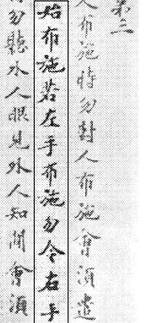 第三
人布施時勿對人布施會湏遣
始布施若左手布施勿令右手
勿聽外人眼見外人知聞會湏